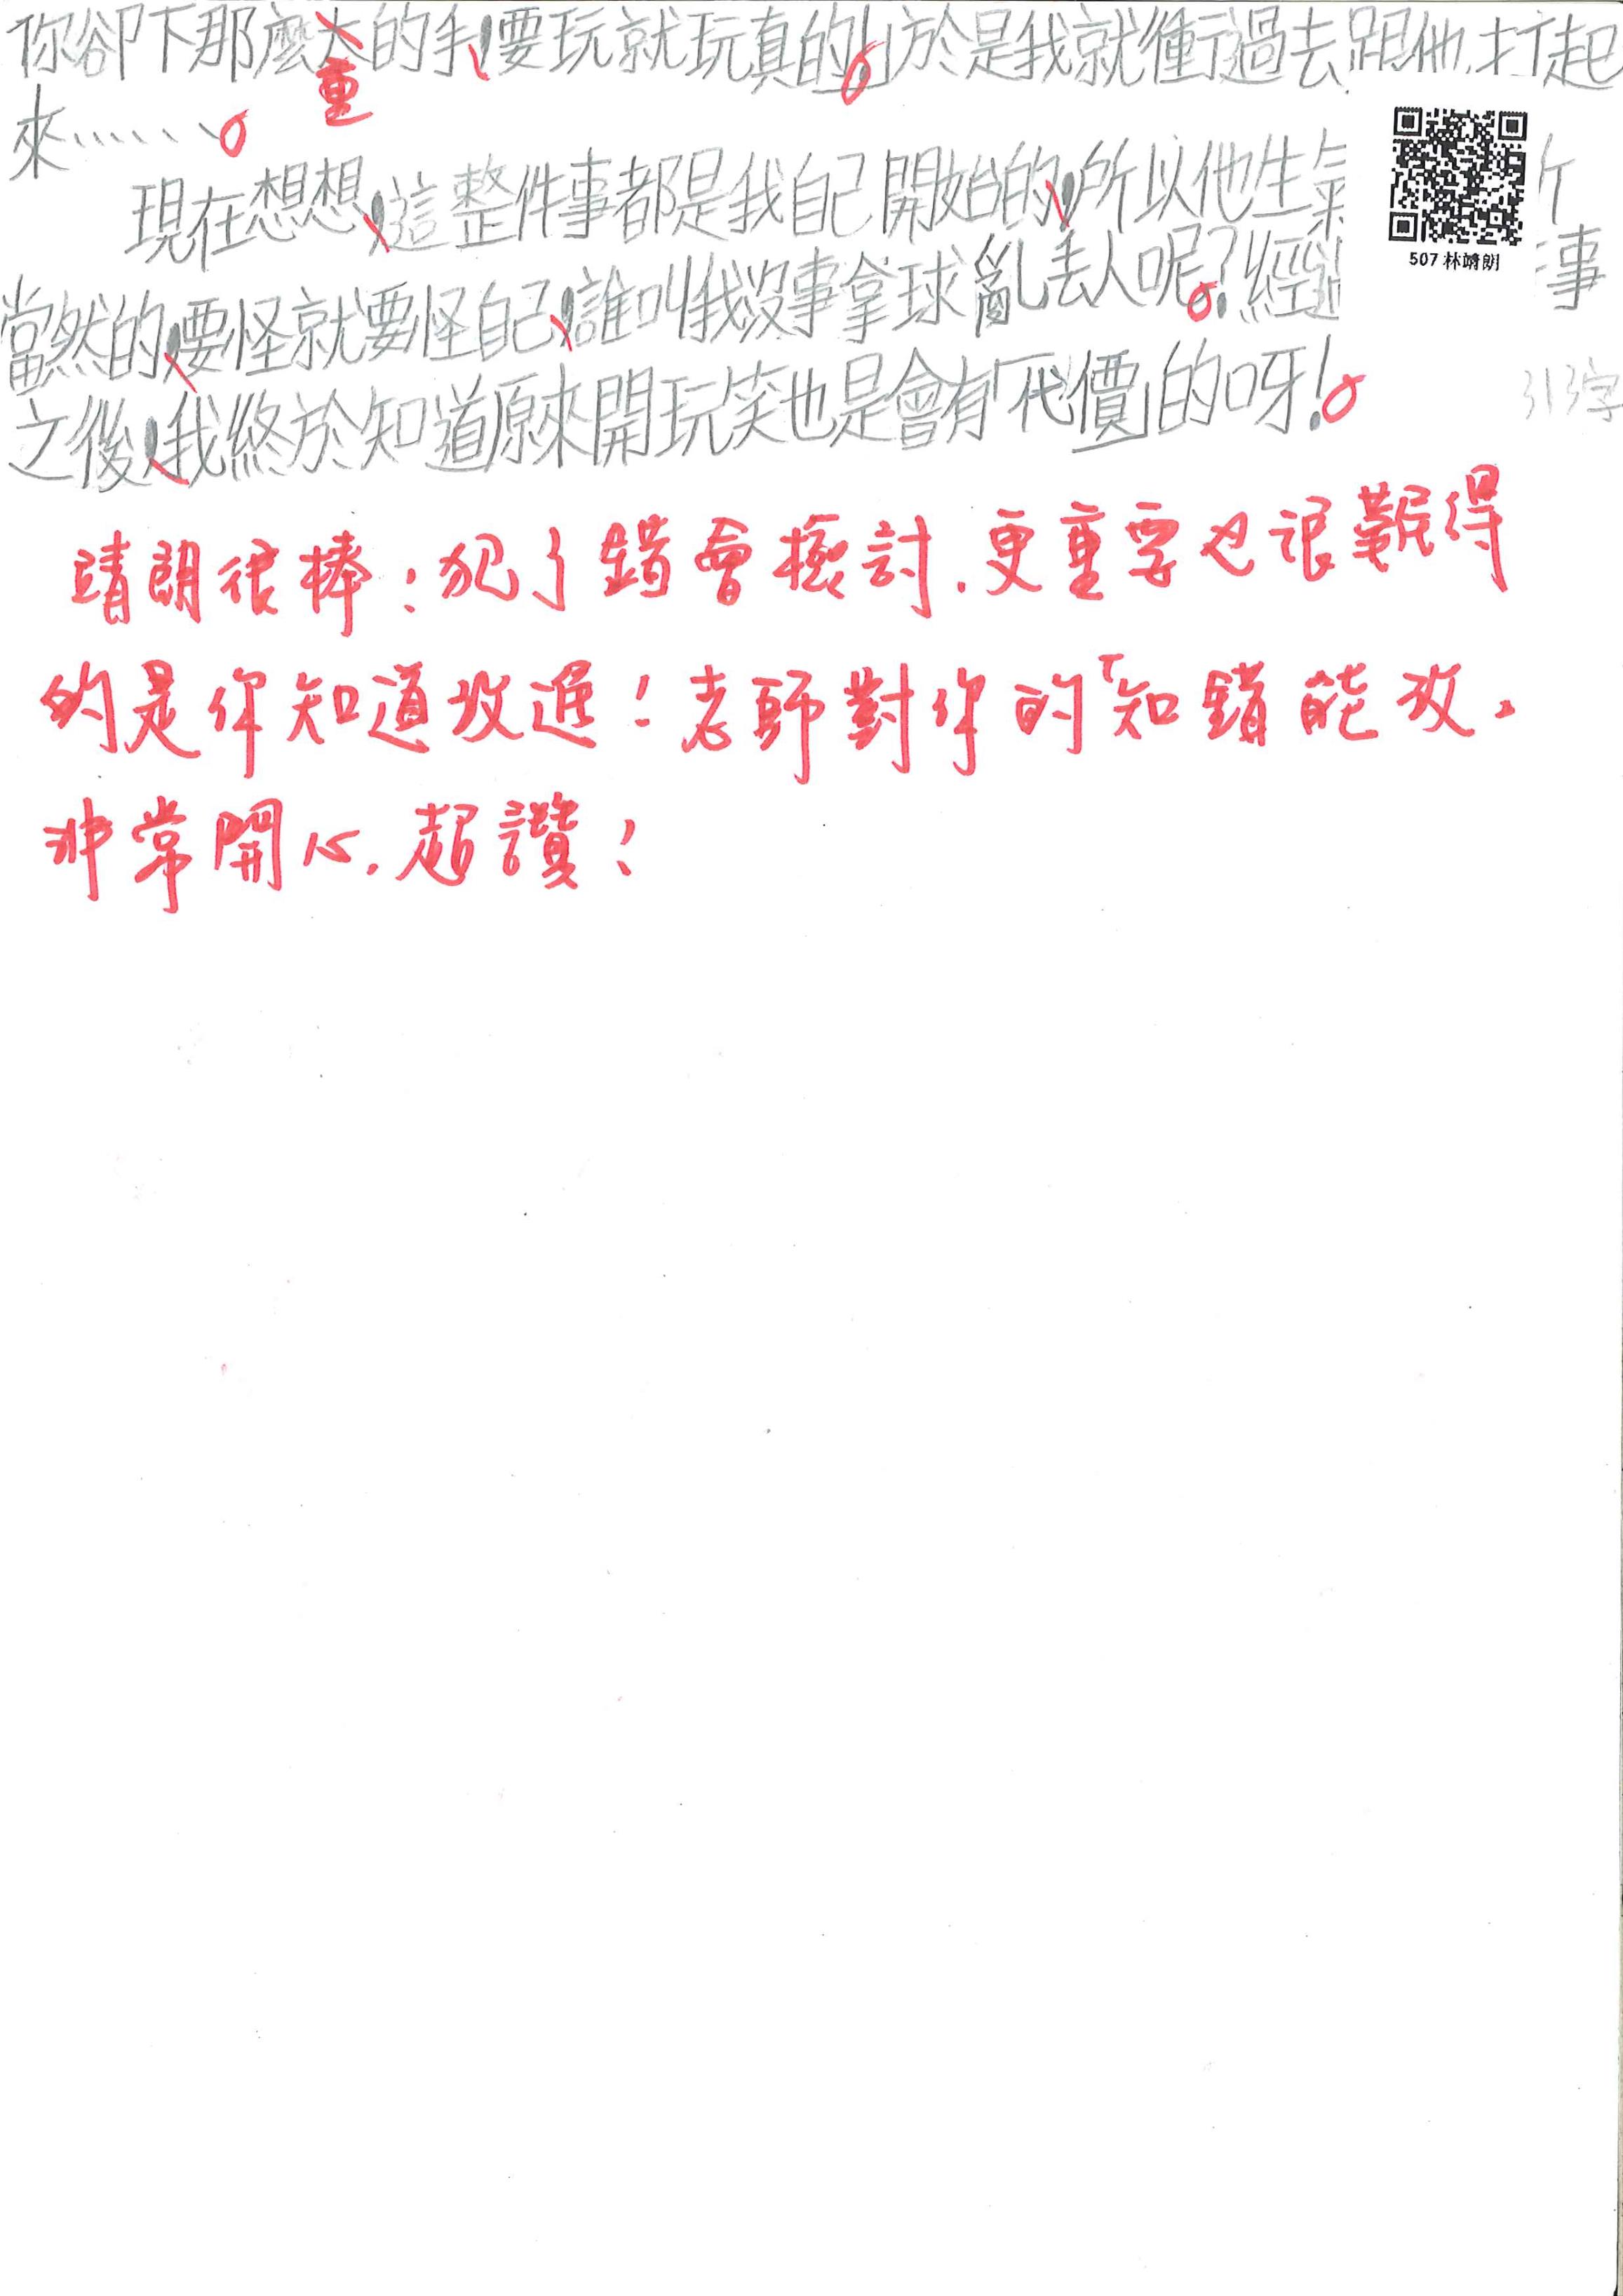 你卻下那麼大的手，要玩就玩真的！」於是我就衝過去跟他打起
重
來……。
現在想想，這整件事都是我自己開始的，所以他生氣
507 林靖朗
當然的，要怪就要怪自己，誰叫我沒事拿球亂丟人呢？經過 事
之後，我終於知道原來開玩笑也是會有「代價」的呀！
313字
靖朗很棒！犯了錯會檢討，更重要也很難得
的是你知道改進！老師對你的「知錯能改」
非常開心，超讚！